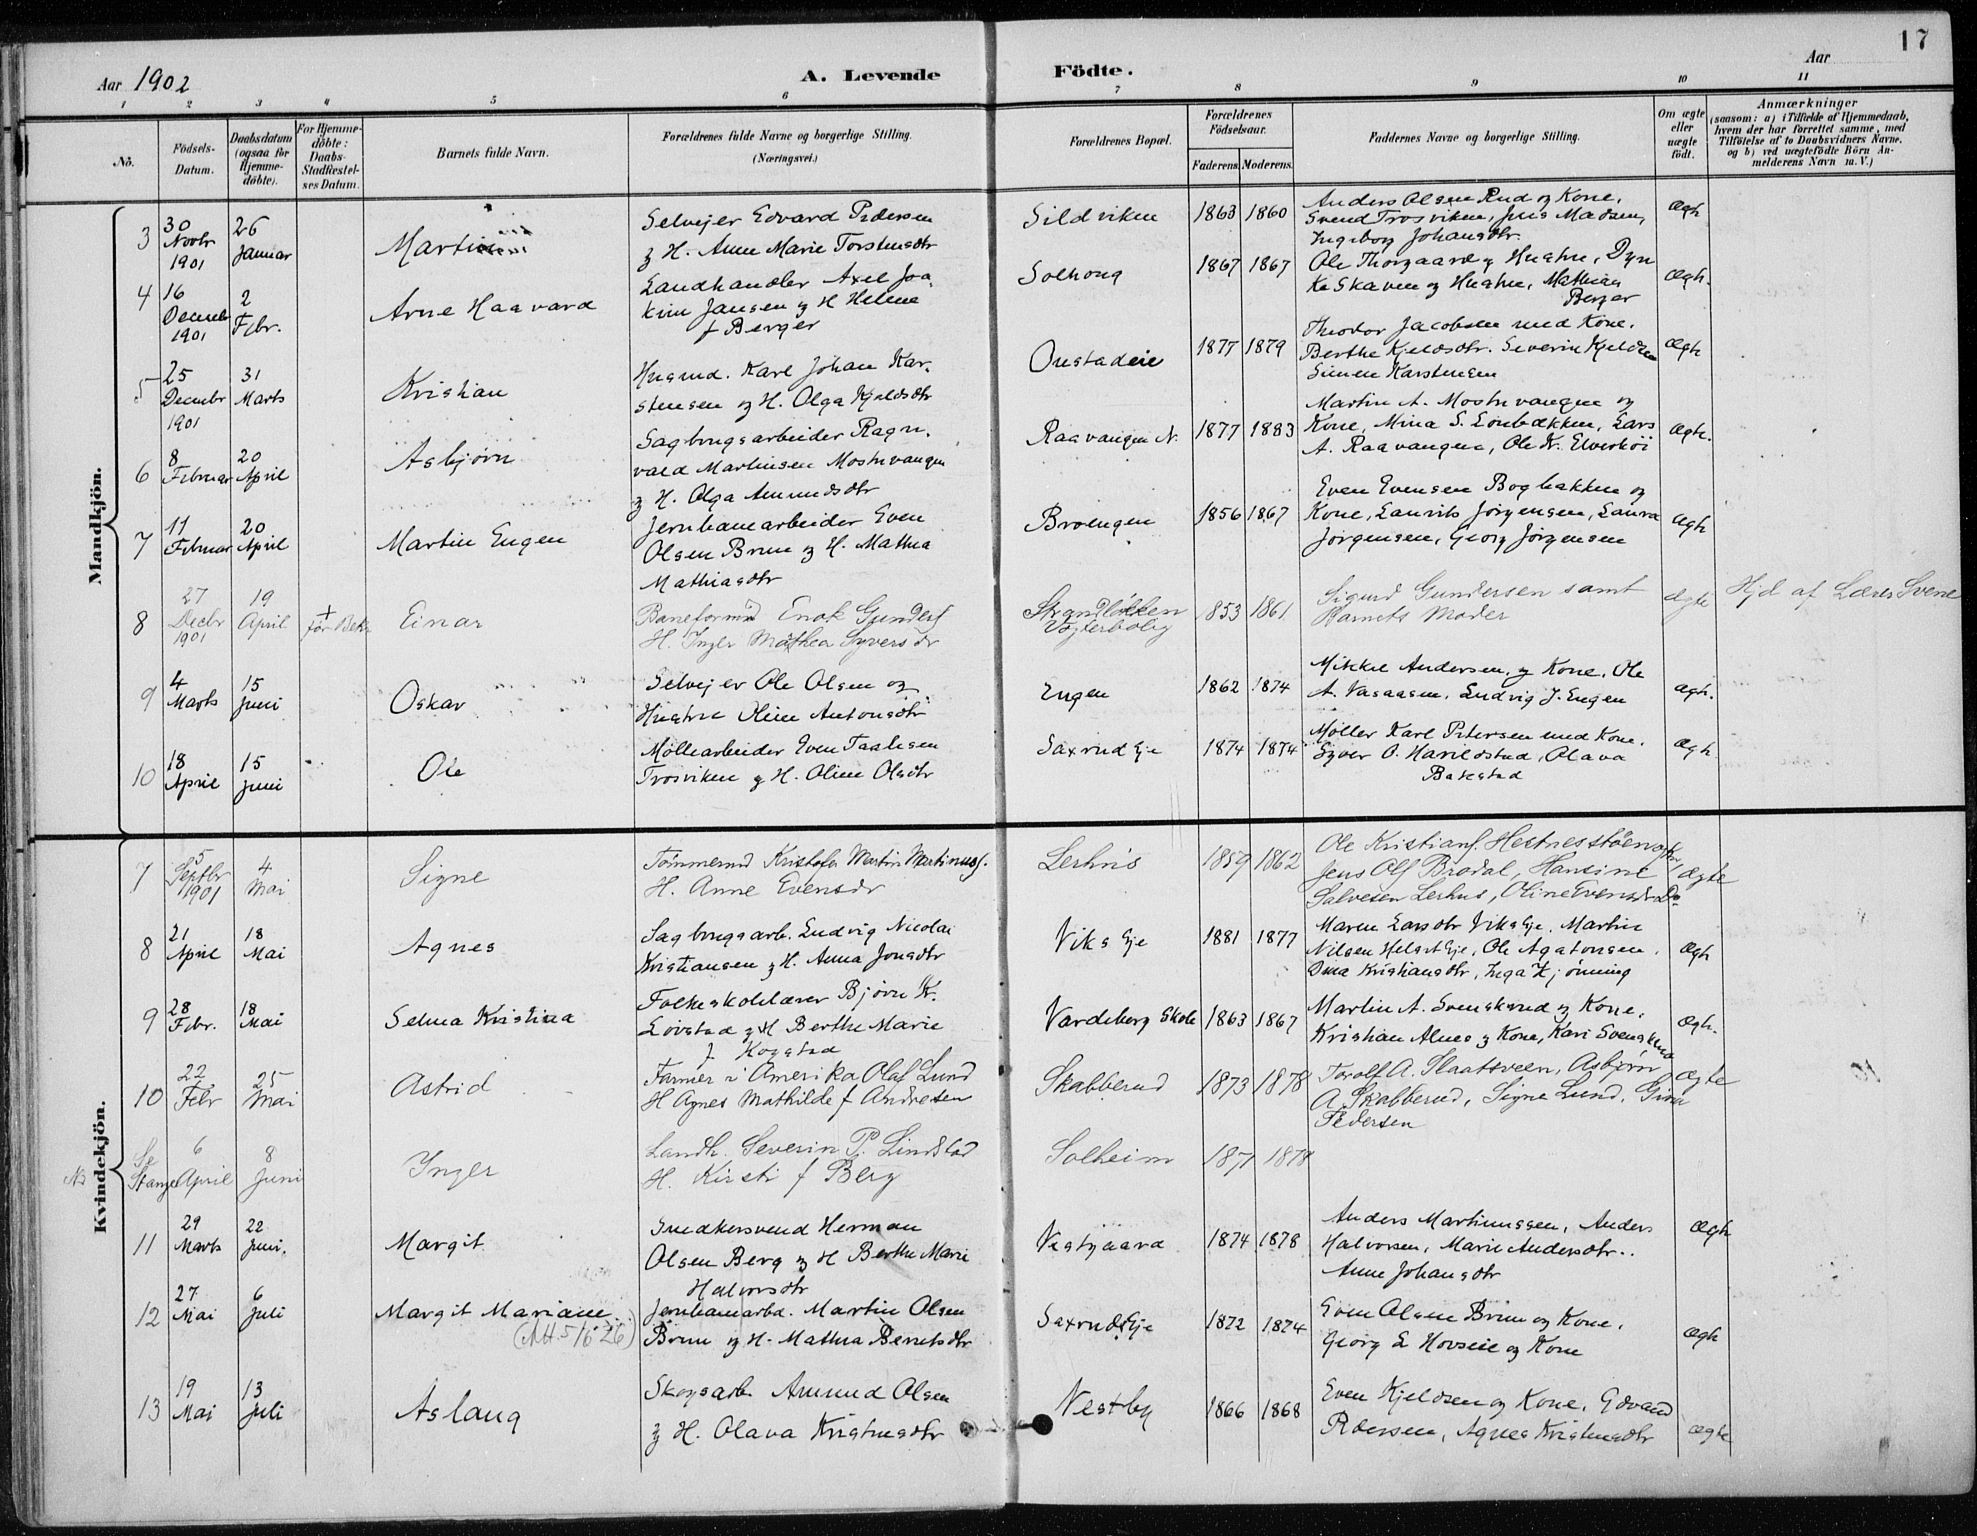 17
Aar 1902
A. Levende
Födte.
Aar
1 2 3 4 5 6 7 8 9 10 11
No.
Födsels-
Datum.
Daabsdatum
(ogsaa for
Hjemme-
döbte).
For Hjemme-
döbte:
Daabs-
Stadfæstel-
ses Datum.
Barnets fulde Navn.
Forældrenes fulde Navne og borgerlige Stilling.
(Næringsvei.)
Forældrenes Bopæl.
Forældrenes
Födselsaar.
Faderens. Moderens.
Faddernes Navne og borgerlige Stilling.
Om ægte
eller
uægte
födt.
Anmærkninger
(saasom: a) i Tilfælde af Hjemmedaab,
hvem der har forrettet samme, med
Tilföielse af to Daabsvidners Navne.
og b) ved uægtefödte Börn An-
melderens Navn m. V.)
Mandkjön.
3
30
Novbr
1901
26
Januar
Martin
Selvejer Edvard Pedersen
og H. Anne Marie Torstensdtr
Sildviken
1863 1860
Anders Olsen Rud og Kone,
Svend Trosviken, Jens Madsen,
Ingeborg Johansdtr.
Ægte
4
16
Decembr
1901
2
Febr.
Arne Haavard
Landhandler Axel Joa-
kim Jansen og H Helene
f Berger
Solhoug
1867 1867
Ole Thorgaard og Hustru, Dyn
Ka Skaven og Hustru, Mathias
Berger
Ægte.
5
25
Decembr
1901
31
Marts
Kristian
Husmd. Karl Johan Kar-
stensen og H. Olga Kjeldsdtr
Onstadeie
1877 1879
Theodor Jacobsen med Kone.
Berthe Kjeldsdtr. Severin Kjeldsen
Simen Karstensen
Ægte
6
8
Februar
20
April
Asbjørn
Sagbrugsarbeider Ragn-
vald Martinsen Mostuvangen
og H. Olga Amundsdtr
Raavangen N.
1877 1883
Martin A. Mostuvangen og
Kone, Mina S. Lonbækken, Lars
A. Raavangen, Ole K. Elverhøi
Ægte.
7
11
Februar
20
April
Martin Eugen
Jernbanearbeider Even
Olsen Brun og H. Mathea
Mathiasdtr
Broengen
1856 1867
Even Evensen Bogbakken og
Kone, Laurits Jørgensen, Laura
Jørgensen, Georg Jørgensen
Ægte
8
27
Decbr
1901
19
April
Einar
Baneformd Enok Gunders
H. Inger Mathea Syversdr
Strandløkken
Vogterbolig
1853 1861
Sigurd Gundersen samt
Barnets Moder
Ægte
Hjd af Lærer Svene
9
4
Marts
15
Juni
Oskar
Selvejer Ole Olsen og
Hustru Oline Antonsdtr
Engen
1862 1874
Mikkel Andersen og Kone, Ole
A. Vasaasen, Ludvig J. Engen
Ægte.
10
18
April
15
Juni
Ole
Møllearbeider Even Taalesen
Trosviken og H. Oline Olsdtr
Saxrud Eje
1874 1874
Møller Karl Petersen med Kone.
Syver O. Harildstad, Olava
Bakstad
Ægte
Kvindekjön.
7
5
Septbr
1901
4
Mai
Signe
Tømmermd Kristofer Martin Martinuss.
H. Anne Evensdr
Lerhus
1859 1862
Ole Kristians. Hestnesstøen
Jens Olf Brodal, Hansine
Salvesen Lerhus, Oline Evensdr
Ægte
8
21
April
18
Mai
Agnes
Sagbrugsarb. Ludvig Nicolai
Kristiansen og H. Anna Jonsdtr
Viks Eje
1881 1877
Maren Larsdtr Viks Eje, Martin
Nilsen Helset Eje, Ole Agatonsen.
Oma Kristiansdtr, Inga Kjønning
Ægte
9
28
Febr.
18
Mai
Selma Kristina
Folkeskolelærer Bjørn K.
Lovstad og H Berthe Marie
f Kogstad
Vardeberg Skole
1863 1867
Martin A. Svenskrud og Kone,
Kristian Alnes og Kone, Kari Svenskrud
Ægte.
10
22
Febr
25
Mai
Astrid
Farmer i Amerika Olaf Lund
H Agnes Mathilde f Andresen
Skabberud
1873 1878
Torolf A. Slaatsveen, Asbjørn
A. Skabberud, Signe Lund, Gina
Pedersen
Ægte
Se
Stange
6
April
8
Juni
Inger
Landh. Severin P. Lindstad
H. Kirsti f Berg
Solheim
1871 1878
11
29
Marts
22
Juni.
Margit
Snedkersvend Herman
Olsen Berg og H Berthe Marie
Halvorsdtr
Vestgaard
1874 1878
Anders Martinussen, Anders
Halvorsen, Marie Andersdtr.
Anne Johansdtr
Ægte
12
27
Mai
6
Juli
Margit Mariane
(Att. 5/6 26)
Jernbanearbd. Martin Olsen
Brun og H. Mathea Berntsdtr
Saxrud Eje
1872 1874
Even Olsen Brun og Kone.
Georg L Hovseie og Kone
Ægte
13
19
Mai
13
Juli
Aslaug
Skogsarb. Amund Olsen
og H. Olava Kristensdtr
Vestby
1866 1868
Even Kjeldsen og Kone, Edvard
Pedersen, Agnes Kristensdtr
Ægte